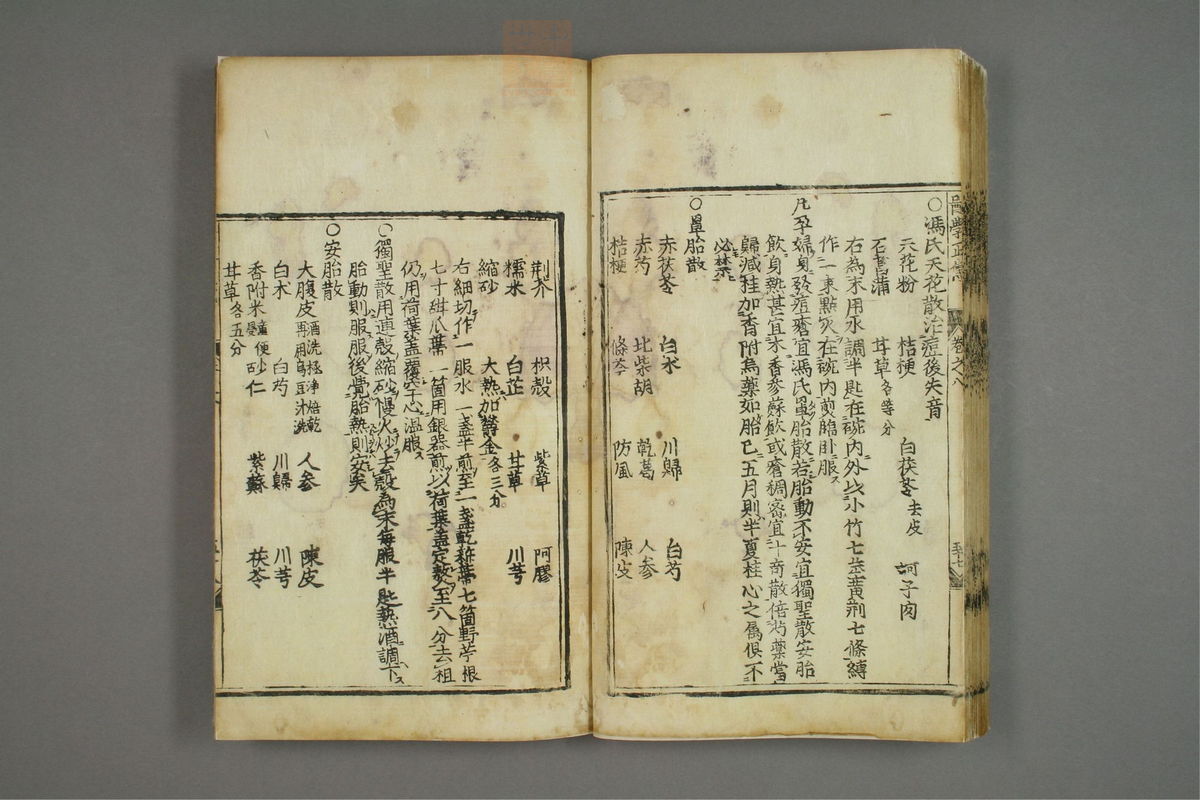 醫學正傳 卷之八 五十七
○馮氏天花散治痘後失音
天花粉 桔梗 白茯苓去皮 訶子肉
石菖蒲 甘草各等分
右為末用水調半匙在碗内外以小竹七莖黄荆七條縛
作一束點火在碗内煎臨卧服
凡孕婦身發痘瘡宜馮氏罩胎散若胎動不安宜獨聖散安胎
飲身熱甚宜木香參蘇飲或瘡稠密宜十奇散倍芍藥當
歸减桂加香附烏藥如胎已五月則半夏桂心之属俱不
必禁忌
○罩胎散
赤茯苓 白朮 川歸 白芍
赤芍 北柴胡 乾葛 人參
桔梗 條芩 防風 陳皮
荆芥 枳殼 紫草 阿膠
糯米 白芷 甘草 川芎
縮砂 大熱加欝金各三分
右細切作一服水一盞半煎至一盞乾柿蔕七箇野苧根
七寸甜瓜蔕一箇用銀器煎以荷葉盖定熬至八分去柤
仍用荷葉盖覆空心温服
○獨聖散用連殻縮砂慢火炒去殻為末每服半匙熱酒調下
胎動則服服後覺胎熱則安矣
○安胎散
大腹皮酒洗極浄焙乾再用烏豆汁洗 人參 陳皮
白朮 白芍 川歸 川芎
香附米童便 砂仁 紫蘇 茯苓
甘草各五分